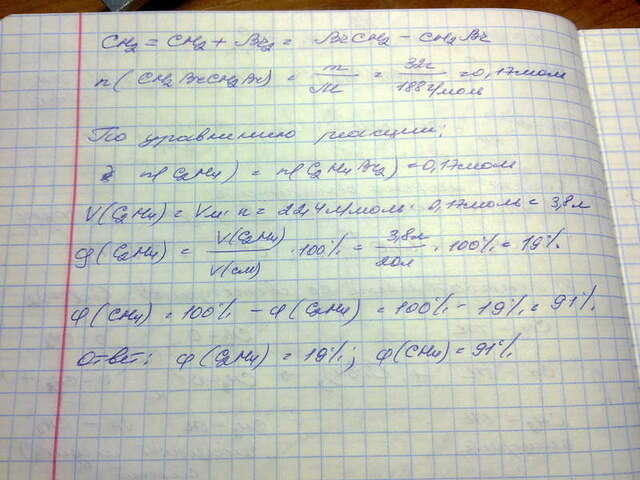 CH2 = CH2 + Br2 = BrCH2 - CH2Br
n(CH2BrCH2Br) = m/M = 32г/188г/моль = 0,17моль
По уравнению реакции:
n(C2H4) = n(C2H4Br2) = 0,17моль
V(C2H4) = Vм · n = 22,4л/моль · 0,17моль = 3,8л
φ(C2H4) = V(C2H4)/V(см) · 100% = 3,8л/20л · 100% = 19%
φ(CH4) = 100% - φ(C2H4) = 100% - 19% = 91%
Ответ: φ(C2H4) = 19%; φ(CH4) = 91%